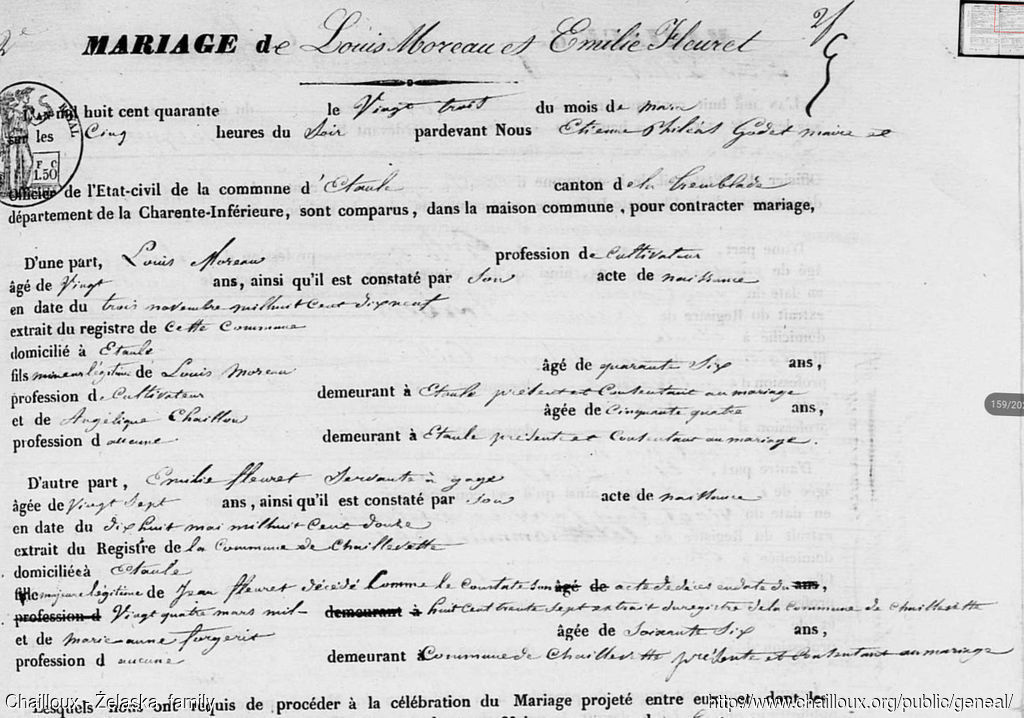 2e
MARIAGE de Louis Moreau et Emilie Fleuret
L'an mil huit cent quarante le Vingt trois du mois de mars
sur les Cinq heures du Soir pardevant Nous Etienne Philéas Godet maire et
F C
1.50
Officier de l'Etat-civil de la commnne d'Etaule canton de la tremblade
département de la Charente-Inférieure, sont comparus, dans la maison commune, pour contracter mariage,
D'une part, Louis Moreau profession de cultivateur
âgé de Vingt ans, ainsi qu'il est constaté par son acte de naissance
en date du trois novembre mil huit cent dix neuf
extrait du registre de cette Commune
domicilié à Etaule
fils mineur légitime de Louis Moreau âgé de quarante Six ans,
profession de Cultivateur demeurant à Etaule présent et Consentant au mariage
et de Angélique Chaillou âgée de Cinquante quatre ans,
profession d aucune demeurant à Etaule présente et Consentant au mariage.
D'autre part, Emilie fleuret Servante à gage
âgée de Vingt Sept ans, ainsi qu'il est constaté par son acte de naissance
en date du dix huit mai mil huit Cent douze
extrait du Registre de la Commune de Chaillevette
domiciliée à Etaule
fille majeure légitime de Jean fleuret décédé Comme le Constate son âgé de acte de décès en date du ans,
profession d Vingt quatre mars mil demeurant à huit Cent trente Sept extrait du registre de la Commune de Chaillevette
et de marie-anne forgerit âgée de Soixante Six ans,
profession d aucune demeurant à Commune de Chaillevette présente et Consentant au mariage
Lesquels nous ont requis de procéder à la célébration du Mariage projeté entre eux, et dont les
159/20
Chailloux - Żelaska family
http://www.chailloux.org/public/geneal/